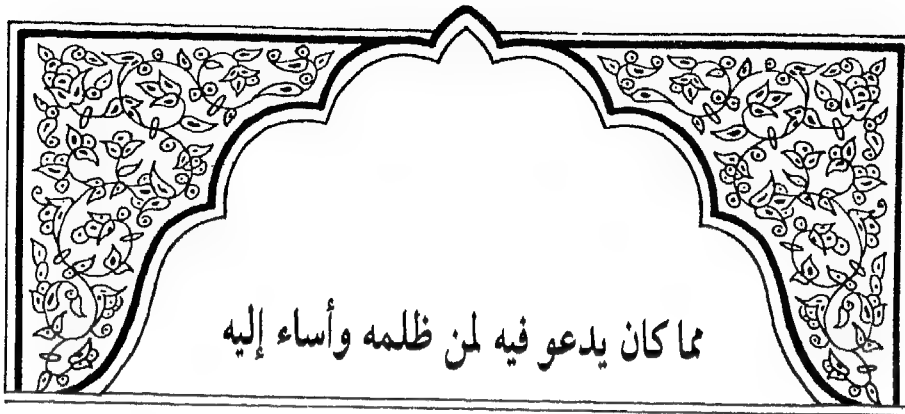 مما كان يدعو فيه لمن ظلمه وأساء إليه